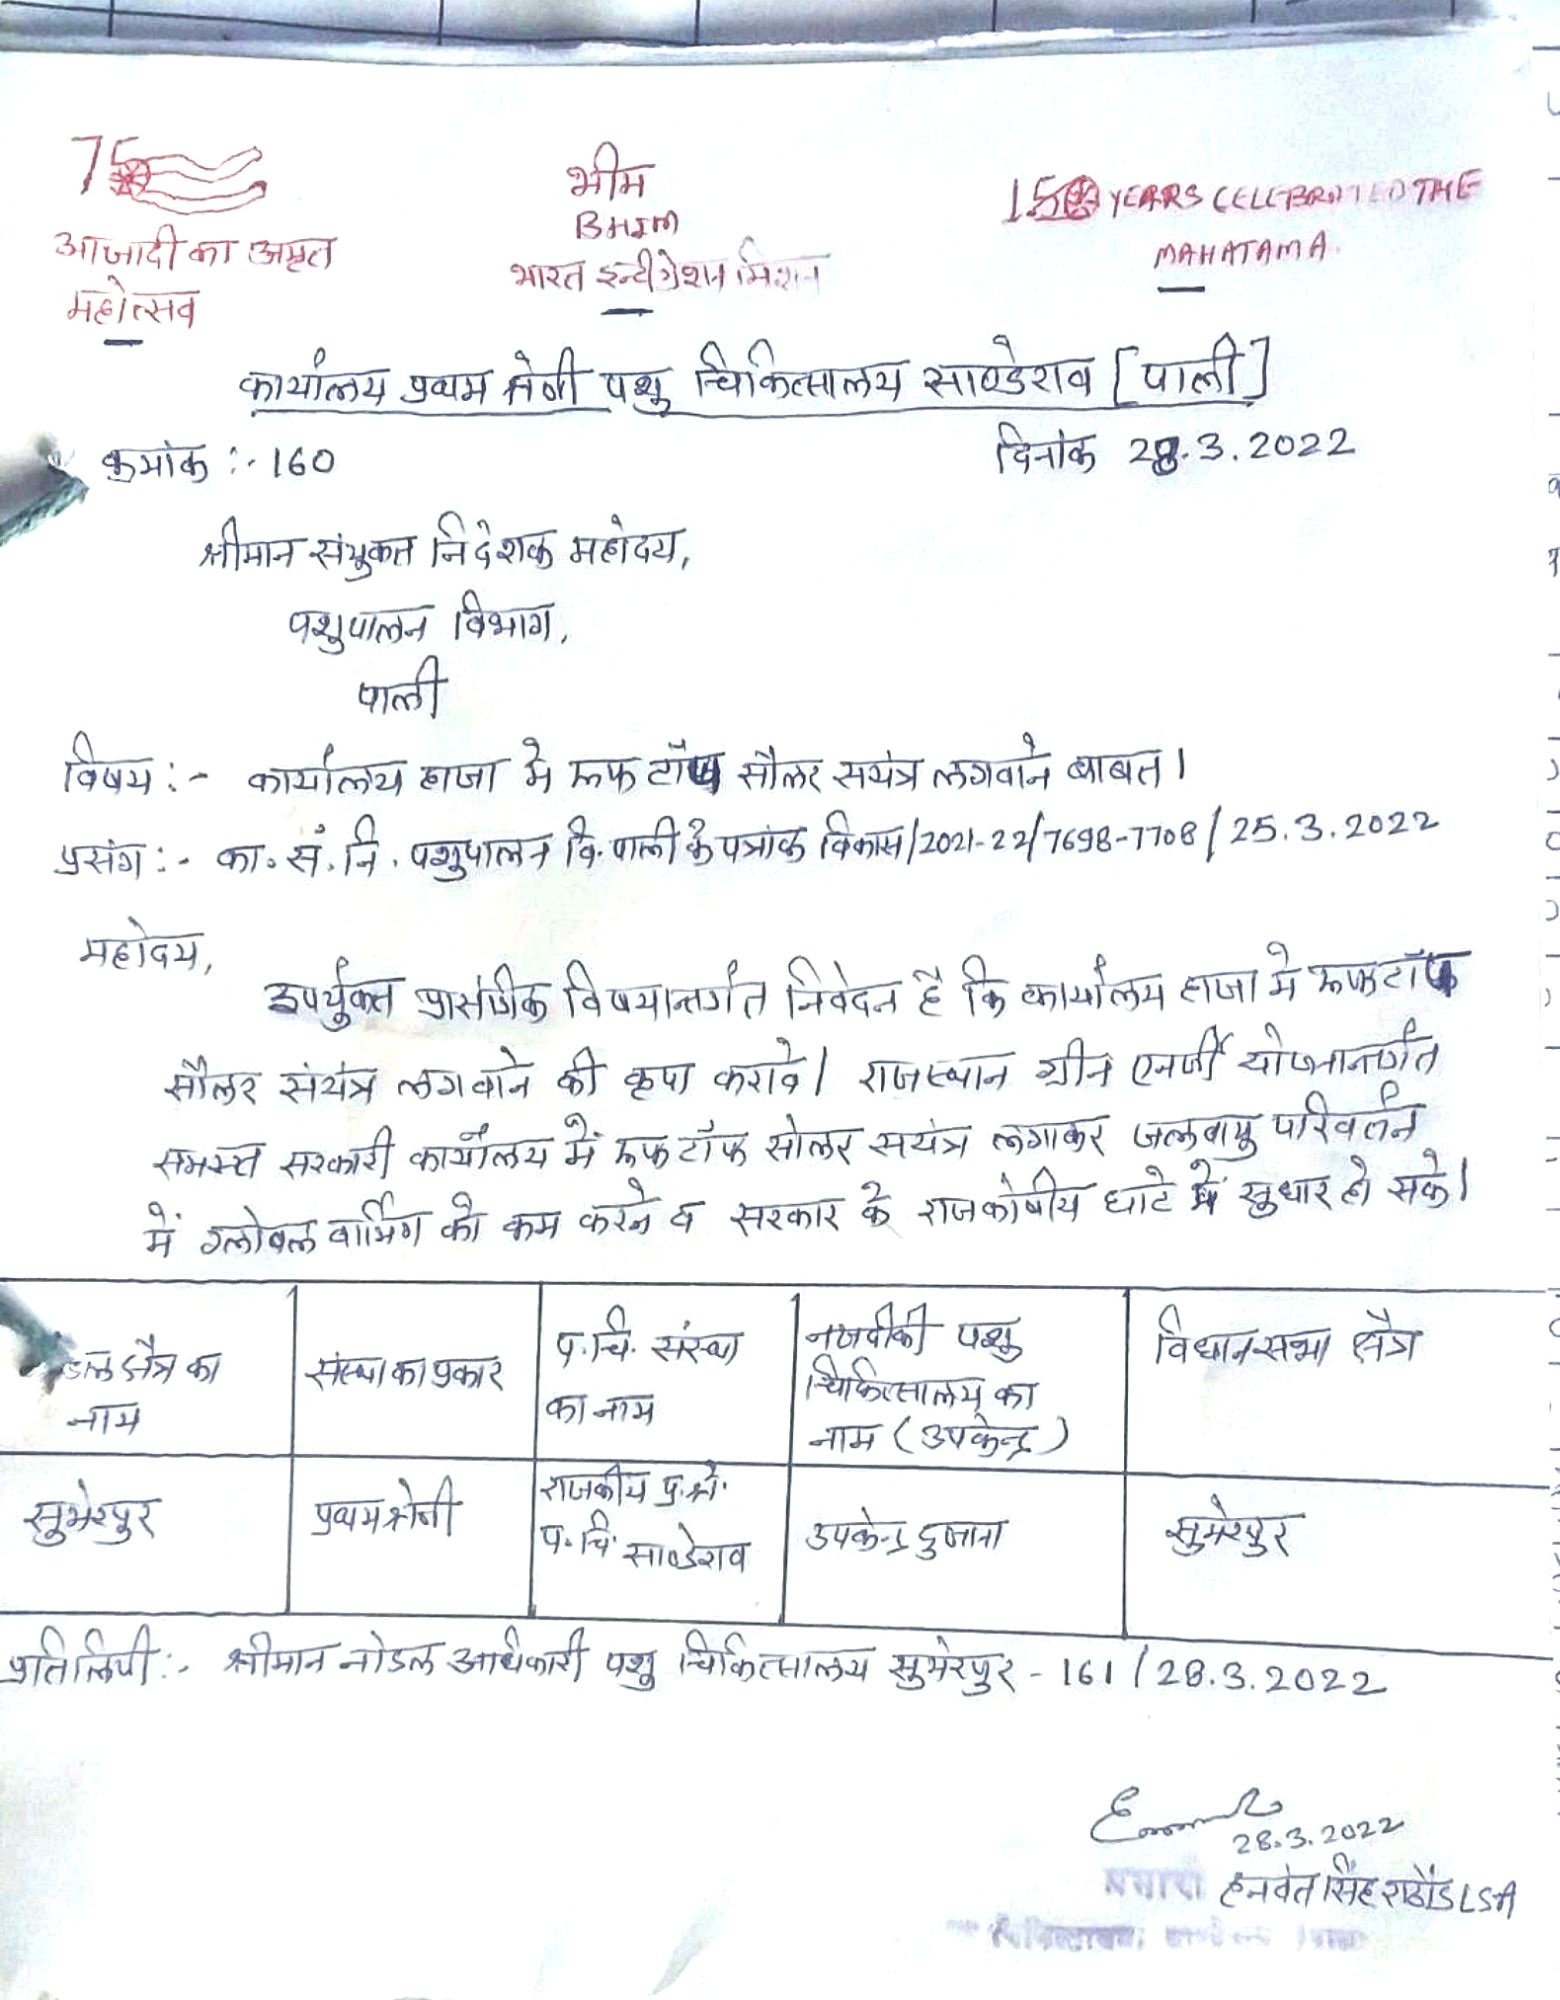 75
आजादी का अमृत
महोत्सव
भीम
BHIM
भारत इन्टीग्रेशन मिशन
150 YEARS CELEBRATED THE
MAHATAMA.
कार्यालय प्रथम श्रेणी पशु चिकित्सालय साण्डेराव [पाली]
क्रमांक :- 160
दिनांक 28.3.2022
श्रीमान संयुक्त निदेशक महोदय,
पशुपालन विभाग,
पाली
विषय :- कार्यालय हाजा मे रूफ टॉफ सौलर सयंत्र लगवाने बाबत।
प्रसंग :- का. सं. नि. पशुपालन वि. पाली के पत्रांक विकास/2021-22/7698-7708/25.3.2022
महोदय,
उपर्युक्त प्रासंगिक विषयान्तर्गत निवेदन है कि कार्यालय हाजा मे रूफ टॉफ
सौलर संयंत्र लगवाने की कृपा करावे। राजस्थान ग्रीन एनर्जी योजनान्तर्गत
समस्त सरकारी कार्यालय में रूफ टॉफ सोलर सयंत्र लगाकर जलवायु परिवर्तन
में ग्लोबल वार्मिंग को कम करने व सरकार के राजकोषीय घाटे में सुधार हो सके।
क्षैत्र का नाम
संस्था का प्रकार
प. चि. संस्था का नाम
नजदीकी पशु चिकित्सालय का नाम (उपकेन्द्र)
विधानसभा क्षैत्र
सुमेरपुर
प्रथम श्रेणी
राजकीय प्र. श्रे. प. चि. साण्डेराव
उपकेन्द्र दुजाना
सुमेरपुर
प्रतिलिपी :- श्रीमान नोडल अधिकारी पशु चिकित्सालय सुमेरपुर - 161/28.3.2022
28.3.2022
हनवंत सिंह राठौड LSA